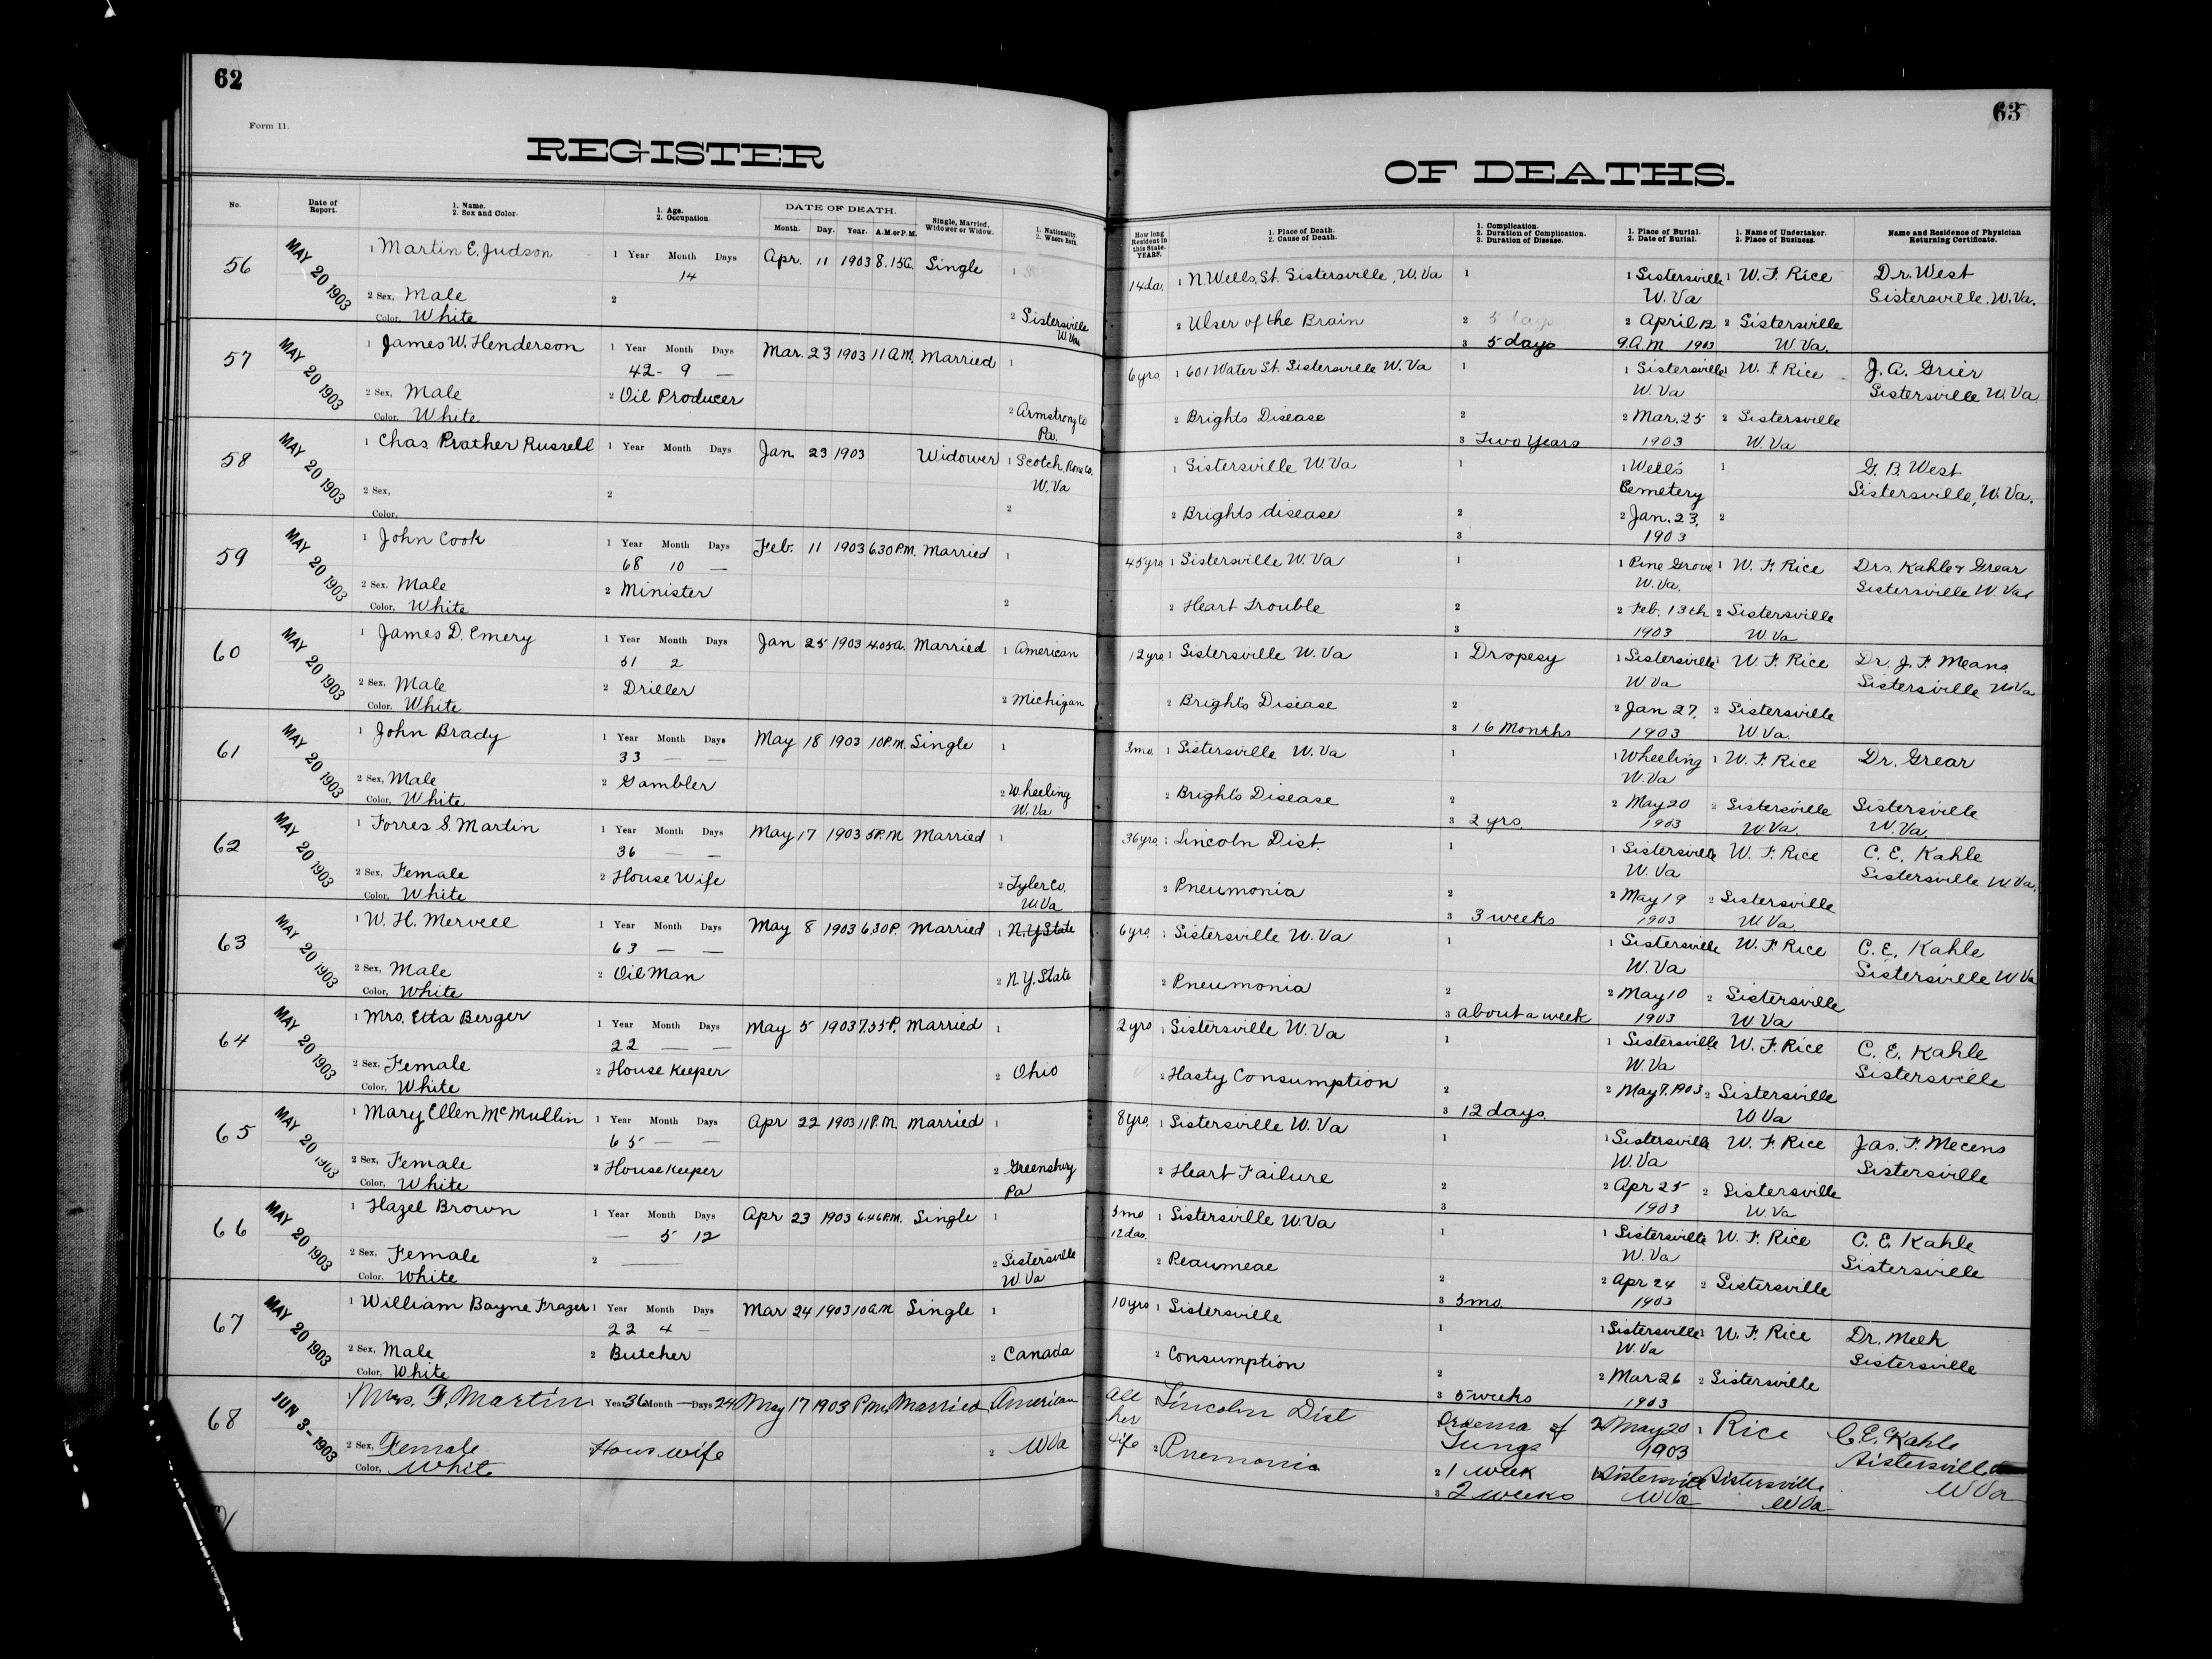 62
Form 11.
REGISTER
No.
Date of Report.
1. Name. 2. Sex and Color.
1. Age. 2. Occupation.
DATE OF DEATH.
Month. Day. Year. A.M. or P.M.
Single, Married, Widower or Widow.
1. Nationality. 2. Where Born.
56 MAY 20 1903 1 Martin E. Judson 1 Year Month Days Apr. 11 1903 8.15a. Single 1
14
2 Sex, Male 2
Color, White 2 Sistersville W.Va
57 MAY 20 1903 1 James W. Henderson 1 Year Month Days Mar. 23 1903 11 A.M. Married 1
42- 9 —
2 Sex, Male 2 Oil Producer 2 Armstrong Co
Color, White Pa.
58 MAY 20 1903 1 Chas. Prather Russell 1 Year Month Days Jan. 23 1903 Widower 1 Scotch Rone Co.
W. Va
2 Sex, 2 2
Color,
59 MAY 20 1903 1 John Cook 1 Year Month Days Feb. 11 1903 6.30 P.M. Married 1
68 10 —
2 Sex. Male 2 Minister 2
Color, White
60 MAY 20 1903 1 James D. Emery 1 Year Month Days Jan 25 1903 4.05a. Married 1 American
51 2
2 Sex, Male 2 Driller 2 Michigan
Color, White
61 MAY 20 1903 1 John Brady 1 Year Month Days May 18 1903 10 P.M. Single 1
33 — —
2 Sex, Male 2 Gambler 2 Wheeling
Color, White W.Va
62 MAY 20 1903 1 Forres S. Martin 1 Year Month Days May 17 1903 5 P.M Married 1
36 — —
2 Sex, Female 2 House Wife 2 Tyler Co.
Color, White W.Va
63 MAY 20 1903 1 W. H. Mervell 1 Year Month Days May 8 1903 6.30 P. Married 1 N.Y. State
63 — —
2 Sex, Male 2 Oil Man 2 N.Y. State
Color, White
64 MAY 20 1903 1 Mrs. Etta Berger 1 Year Month Days May 5 1903 7.55 P. Married 1
22 — —
2 Sex. Female 2 House Keeper 2 Ohio
Color, White
65 MAY 20 1903 1 Mary Ellen McMullin 1 Year Month Days Apr 22 1903 11 P.M. Married 1
65 — —
2 Sex, Female 2 House Keeper 2 Greensbury
Color, White Pa
66 MAY 20 1903 1 Hazel Brown 1 Year Month Days Apr 23 1903 6.46 P.M. Single 1
— 5 12
2 Sex, Female 2 — 2 Sistersville
Color. White W.Va
67 MAY 20 1903 1 William Bayne Frazer 1 Year Month Days Mar 24 1903 10 a.m Single 1
22 4 —
2 Sex, Male 2 Butcher 2 Canada
Color, White
68 JUN 3- 1903 Mrs. F. Martin 1 Year 36 Month — Days 24 May 17 1903 P.M. Married American
2 Sex, Female Hous wife 2 W Va
Color, White
63
OF DEATHS.
How long Resident in this State. YEARS.
1. Place of Death. 2. Cause of Death.
1. Complication. 2. Duration of Complication. 3. Duration of Disease.
1. Place of Burial. 2. Date of Burial.
1. Name of Undertaker. 2. Place of Business.
Name and Residence of Physician Returning Certificate.
14 da. 1 N. Wells. St. Sistersville, W. Va 1 1 Sistersville 1 W. F. Rice Dr. West
W. Va Sistersville. W. Va.
2 Ulser of the Brain 2 5 days 2 April 12 2 Sistersville
3 5 days 9. A.M 1903 W. Va.
6 yrs. 1 601 Water St. Sistersville W. Va 1 1 Sistersville 1 W. F. Rice J. A. Grier
W. Va Sistersville W. Va
2 Brights Disease 2 2 Mar. 25 2 Sistersville
3 Two Years 1903 W. Va
1 Sistersville W. Va 1 1 Wells 1 G. B. West
Cemetery Sistersville, W. Va.
2 Brights disease 2 2 Jan. 23, 2
3 1903
45 yrs 1 Sistersville W. Va 1 1 Pine Grove 1 W. F. Rice Drs. Kahle & Grear
W. Va. Sistersville W. Va
2 Heart Trouble 2 2 Feb. 13th 2 Sistersville
3 1903 W. Va
12 yrs 1 Sistersville W. Va 1 Dropesy 1 Sistersville 1 W. F. Rice Dr. J. F. Means
W. Va Sistersville W Va
2 Bright's Disease 2 2 Jan 27, 2 Sistersville
3 16 Months 1903 W Va.
3 mo. 1 Sistersville W. Va 1 1 Wheeling 1 W. F. Rice Dr. Grear
W. Va
2 Bright's Disease 2 2 May 20 2 Sistersville Sistersville
3 2 yrs. 1903 W. Va. W. Va.
36 yrs. 1 Lincoln Dist. 1 1 Sistersville W. F. Rice C. E. Kahle
W. Va Sistersville W Va.
2 Pneumonia 2 2 May 19 2 Sistersville
3 3 weeks 1903 W. Va
6 yrs. 1 Sistersville W. Va 1 1 Sistersville W. F. Rice C. E. Kahle
W. Va Sistersville W Va
2 Pneumonia 2 2 May 10 2 Sistersville
3 about a week 1903 W. Va
2 yrs 1 Sistersville W. Va 1 1 Sistersville W. F. Rice C. E. Kahle
W. Va Sistersville
2 Hasty Consumption 2 2 May 7. 1903 2 Sistersville
3 12 days. W Va
8 yrs. 1 Sistersville W. Va 1 1 Sistersville W. F. Rice Jas. F. Mecens
W. Va Sistersville
2 Heart Failure 2 2 Apr 25 2 Sistersville
3 1903 W. Va
5 mo 12 das. 1 Sistersville W. Va 1 1 Sistersville W. F. Rice C. E. Kahle
W. Va Sistersville
2 Peaumeae 2 2 Apr 24 2 Sistersville
3 5 mo. 1903
10 yrs 1 Sistersville 1 1 Sistersville 1 W. F. Rice Dr. Meek
W. Va Sistersville
2 Consumption 2 2 Mar 26 2 Sistersville
3 5 weeks 1903
All her life Lincoln Dist Oedema of Lungs 2 May 20 1903 1 Rice C. E. Kahle
Sistersville
2 Pnemonia 2 1 week 1 Sistersville Sistersville W Va
3 2 weeks W Va W Va